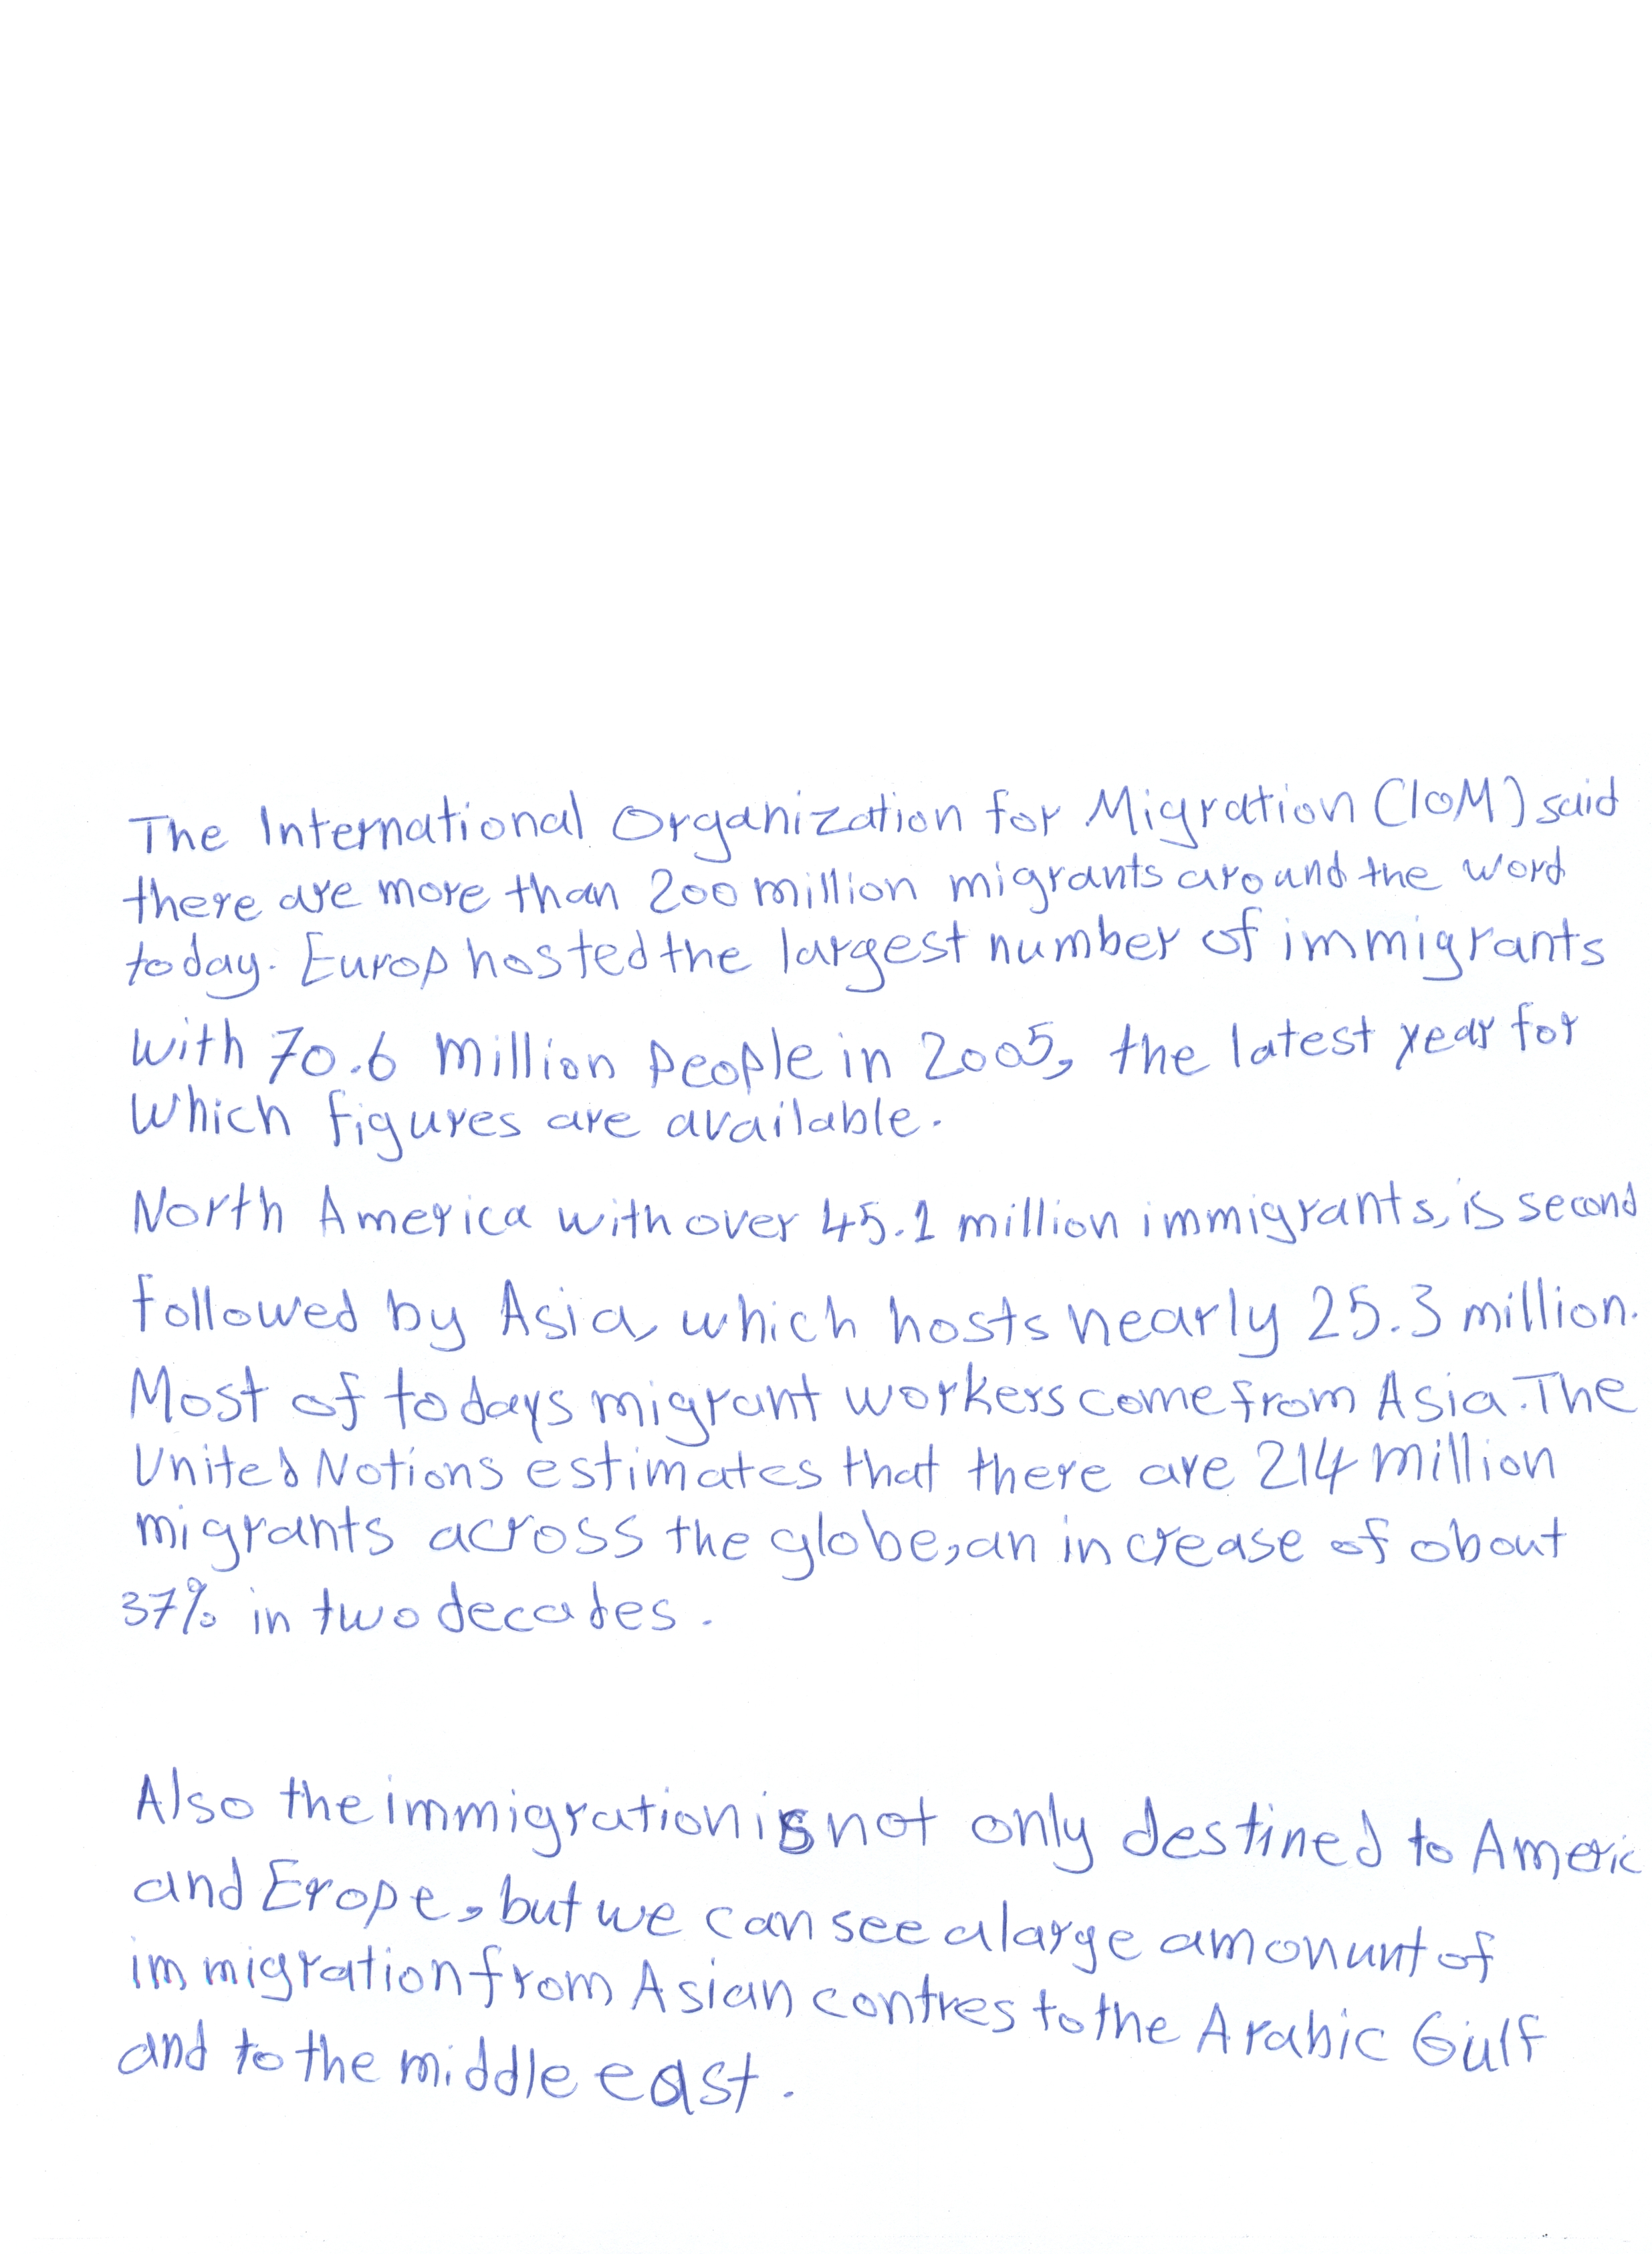 The International Organization for Migration (IOM) said
there are more than 200 million migrants around the word
today. Europ hosted the largest number of immigrants
with 70.6 million people in 2005, the latest year for
which figures are available.
North America with over 45.1 million immigrants, is second
followed by Asia, which hosts nearly 25.3 million.
Most of todays migrant workers come from Asia. The
United Notions estimates that there are 214 million
migrants across the globe, an increase of obout
37% in two decades.
Also the immigration is not only destined to Americ
and Erope, but we can see a large amonunt of
immigration from Asian contres to the Arabic Gulf
and to the middle east.